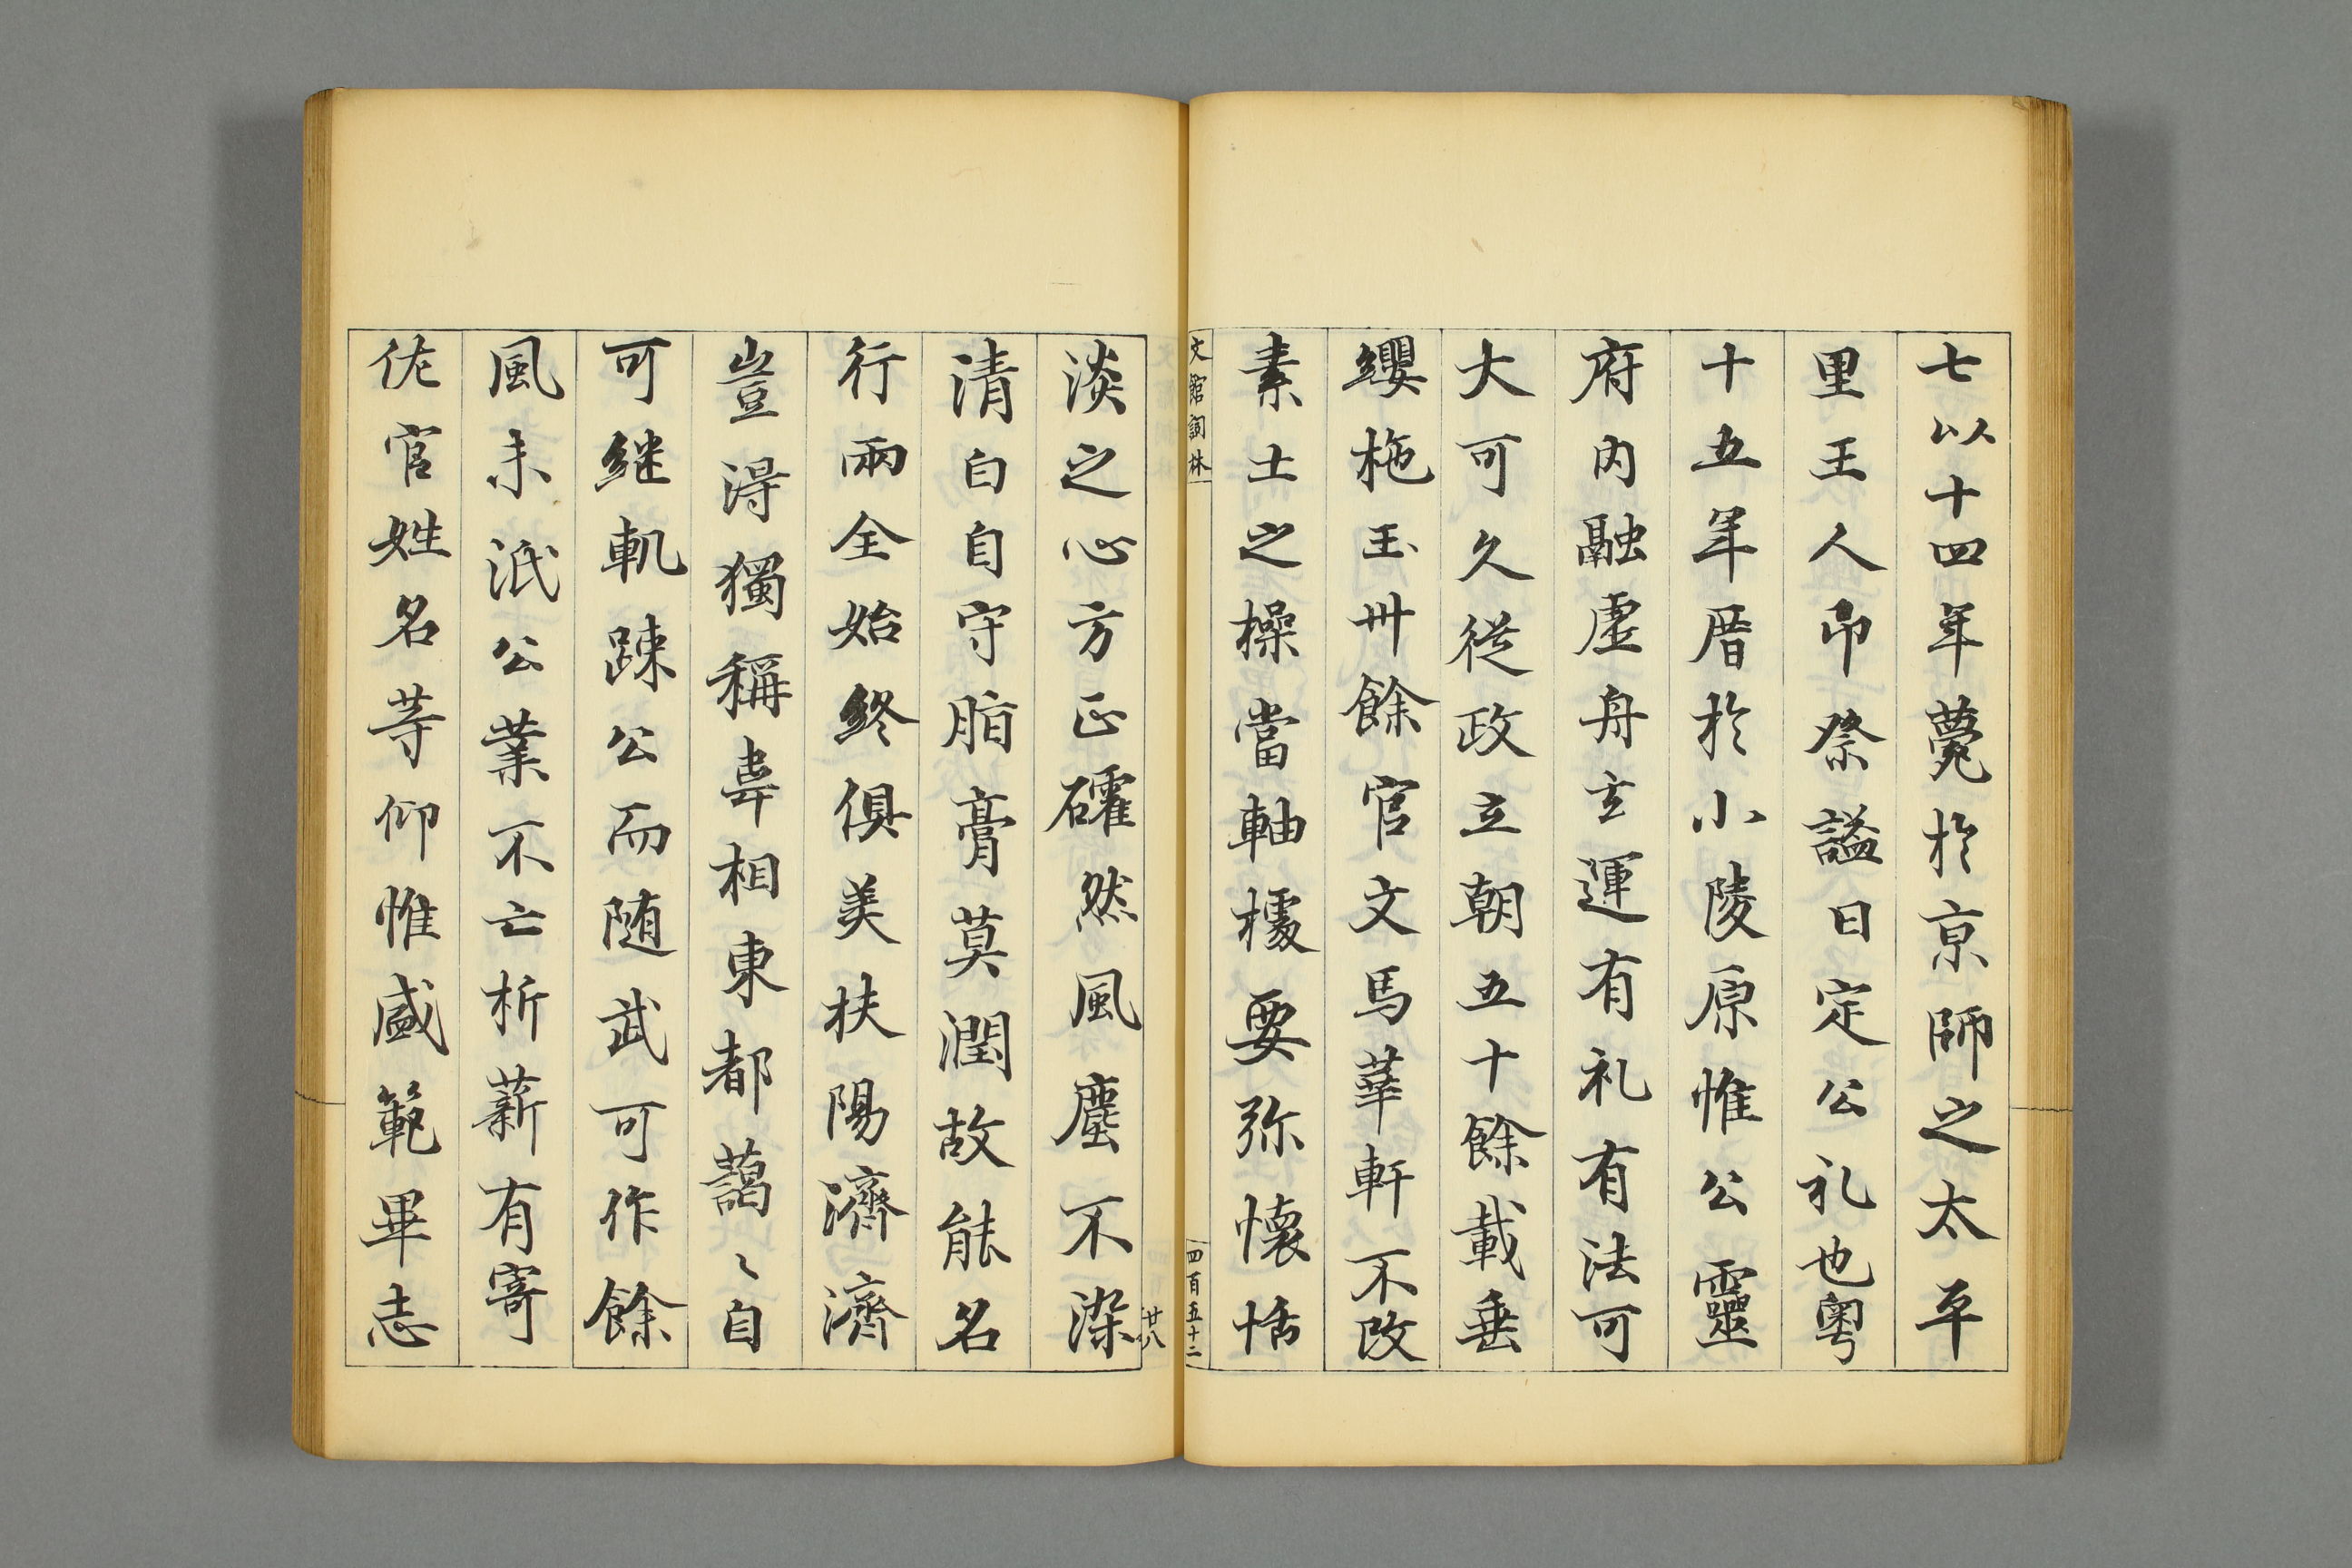 七以十四年薨於京師之太平
里王人弔祭謚曰定公礼也粤
十五年厝於小陵原惟公靈
府内融虚舟玄運有礼有法可
大可久從政立朝五十餘載垂
纓拖玉卅餘官文馬華軒不改
素士之操當軸據要弥懷恬
文館詞林
四百五十二
廿八
淡之心方正礭然風塵不染
清白自守脂膏莫潤故能名
行兩全始終俱美扶陽濟濟
豈淂獨稱韋相東都藹〻自
可継軌踈公而随武可作餘
風未泯公業不亡析薪有寄
佐官姓名等仰惟盛範畢志